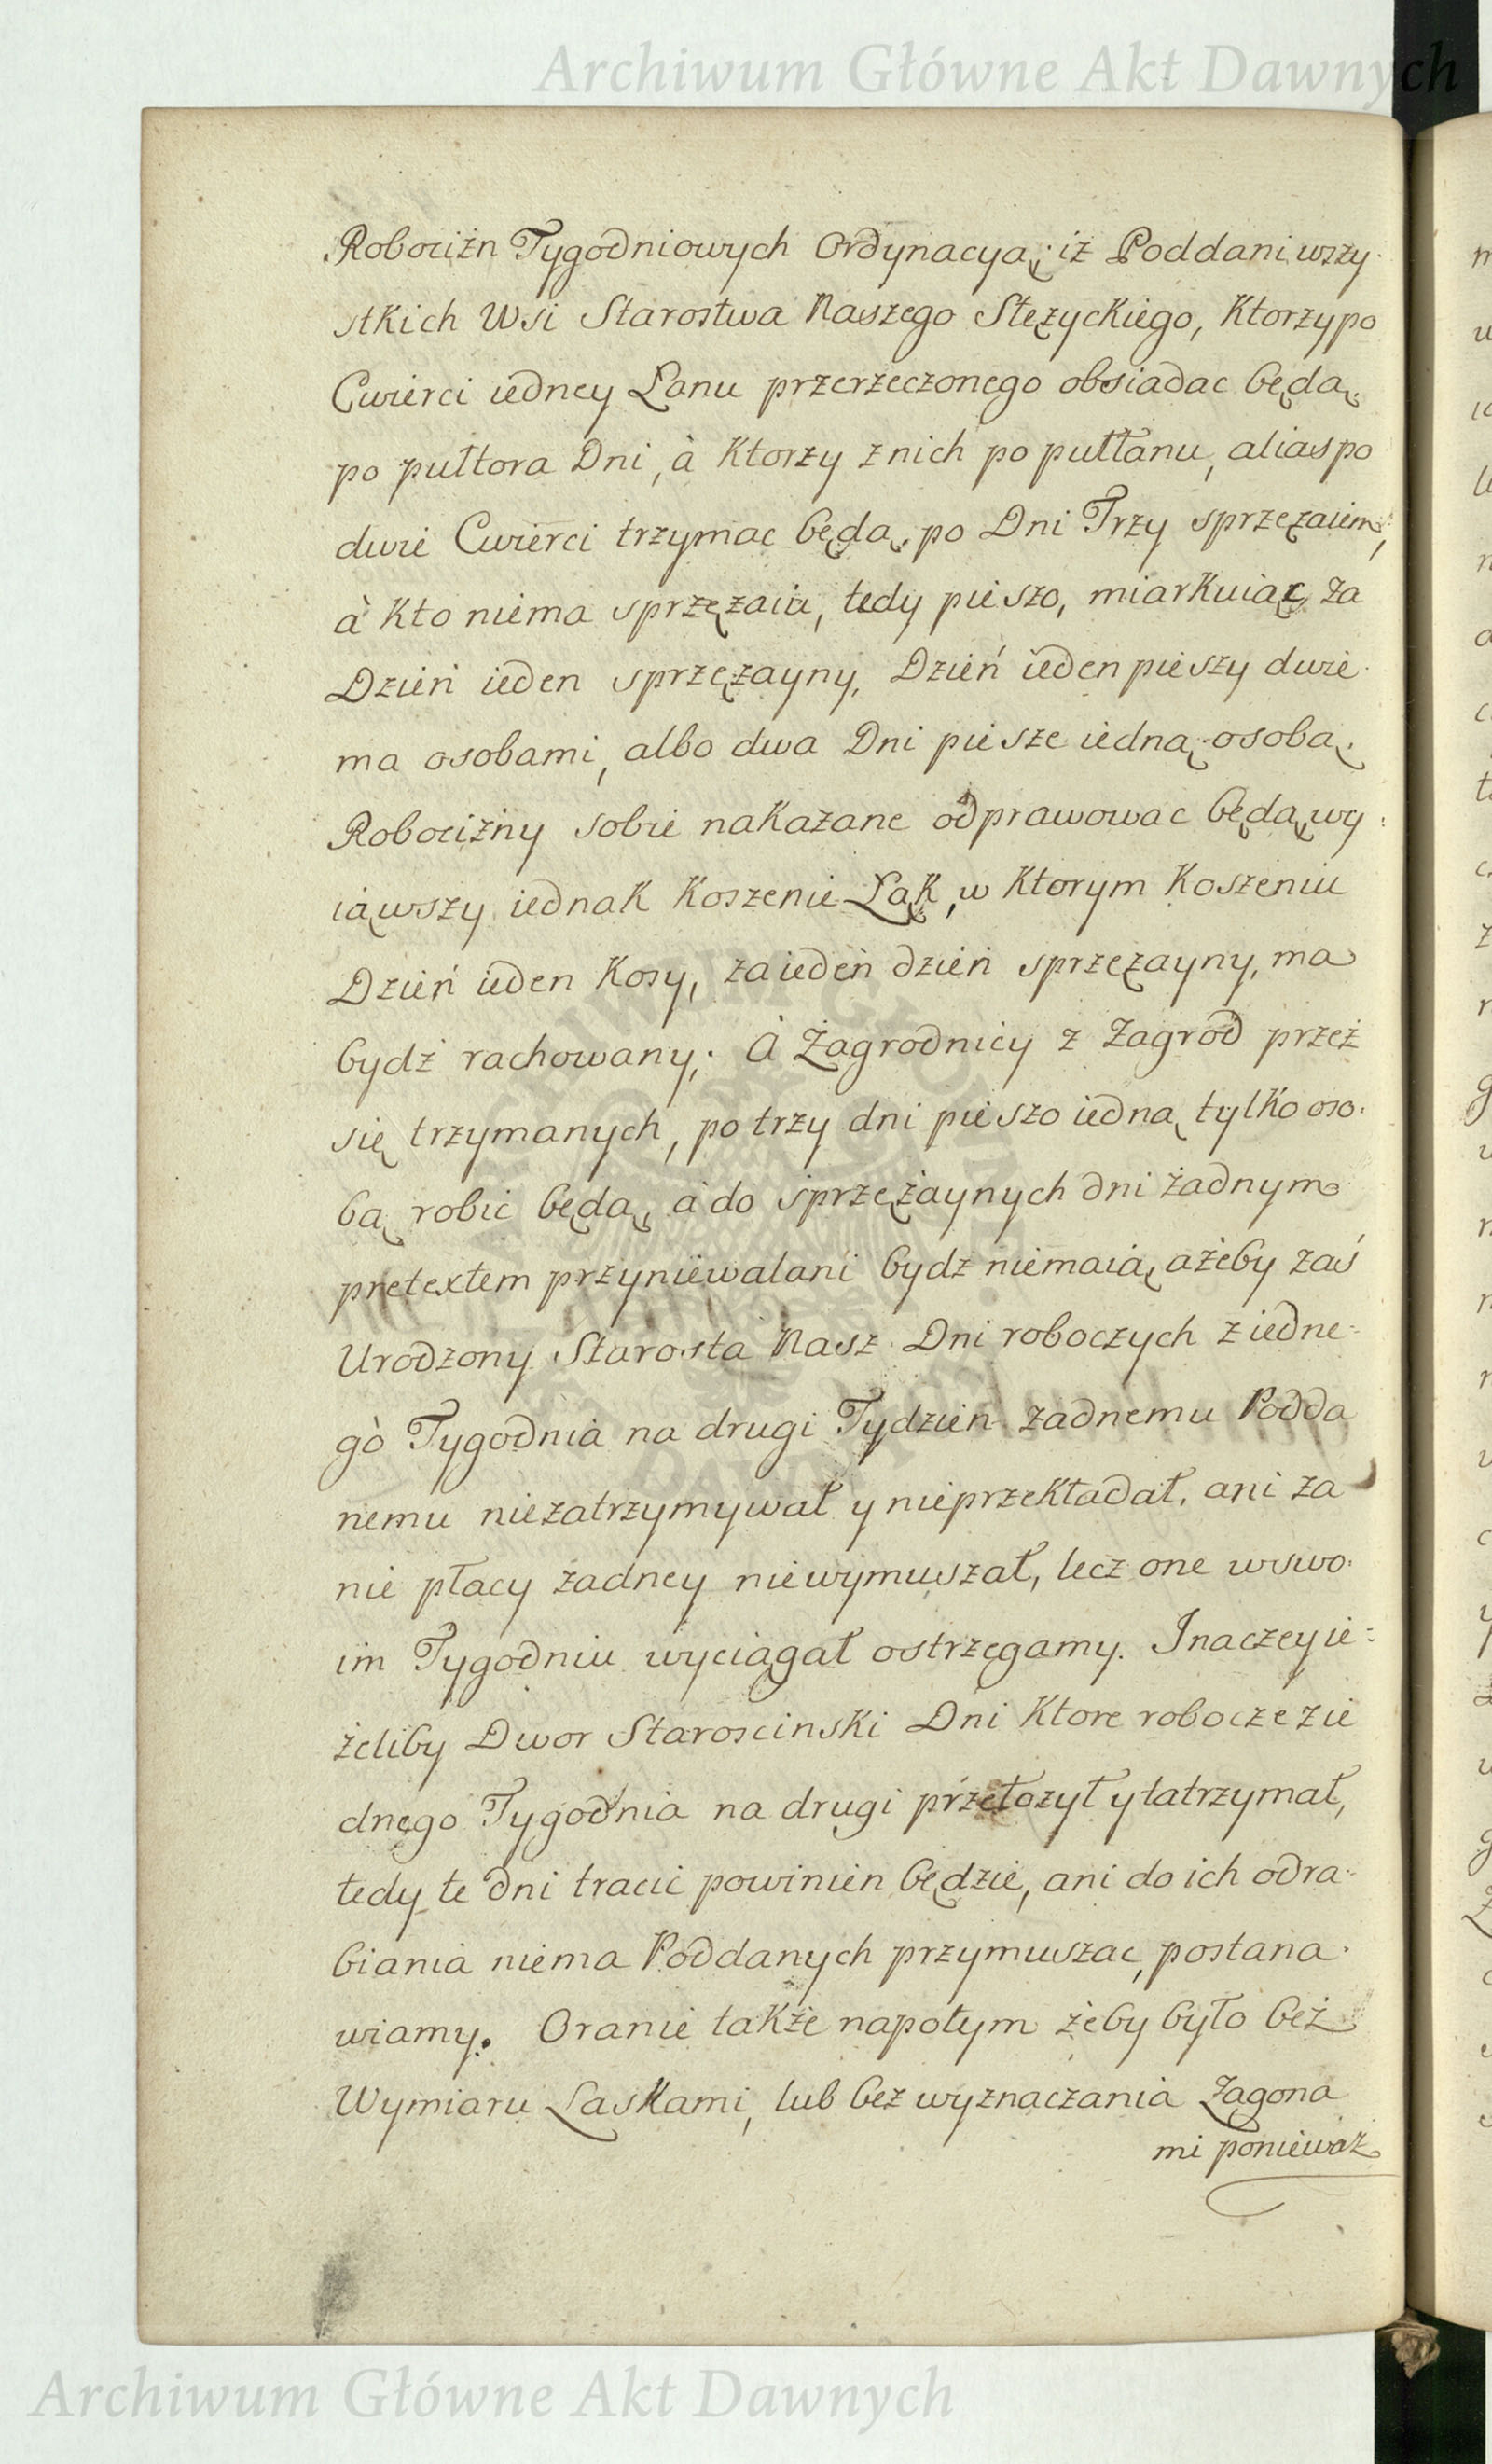 Archiwum Główne Akt Dawnych
Robocizn Tygodniowych Ordynacyą; iż Poddani wszy-
stkich Wsi Starostwa Naszego Stęzyckiego, Ktorzy po
Cwierci iedney Łanu przerzeczonego obsiadac będą,
po pułtora Dni, à Ktorzy z nich po pułłanu, alias po
dwie Cwierci trzymac będą, po Dni Trzy sprzęzaiem,
à Kto niema sprzęzaiu, tedy pieszo, miarkuiąc za
Dzień ieden sprzęzayny, Dzień ieden pieszy dwie-
ma osobami, albo dwa Dni piesze iedną osobą,
Robocizny sobie nakazane odprawowac będą, wy-
iąwszy iednak Koszenie Łąk, w Ktorym Koszeniu
Dzień ieden Kosy, za ieden dzień sprzęzayny, ma
bydź rachowany; à Zagrodnicy z Zagrod przez
się trzymanych, po trzy dni pieszo iedną tylko oso-
bą robić będą, à do sprzężaynych dni żadnym
pretextem przyniewalani bydz niemaią, ażeby zaś
Urodzony Starosta Nasz Dni roboczych z iedne-
gò Tygodnia na drugi Tydzień żadnemu Podda
nemu niezatrzymywał y nieprzekładał, ani za
nie płacy żadney niewymuszał, lecz one w swo-
im Tygodniu wyciągał ostrzegamy. Inaczey ie-
żeliby Dwor Staroscinski Dni Ktore robocze z ie
dnego Tygodnia na drugi przełozył y tatrzymał,
tedy te dni tracić powinien będzie, ani do ich odra-
biania niema Poddanych przymuszac, postana-
wiamy. Oranie także napotym żeby było bez
Wymiaru Laskami, lub bez wyznaczania Zagona
mi ponieważ
Archiwum Główne Akt Dawnych